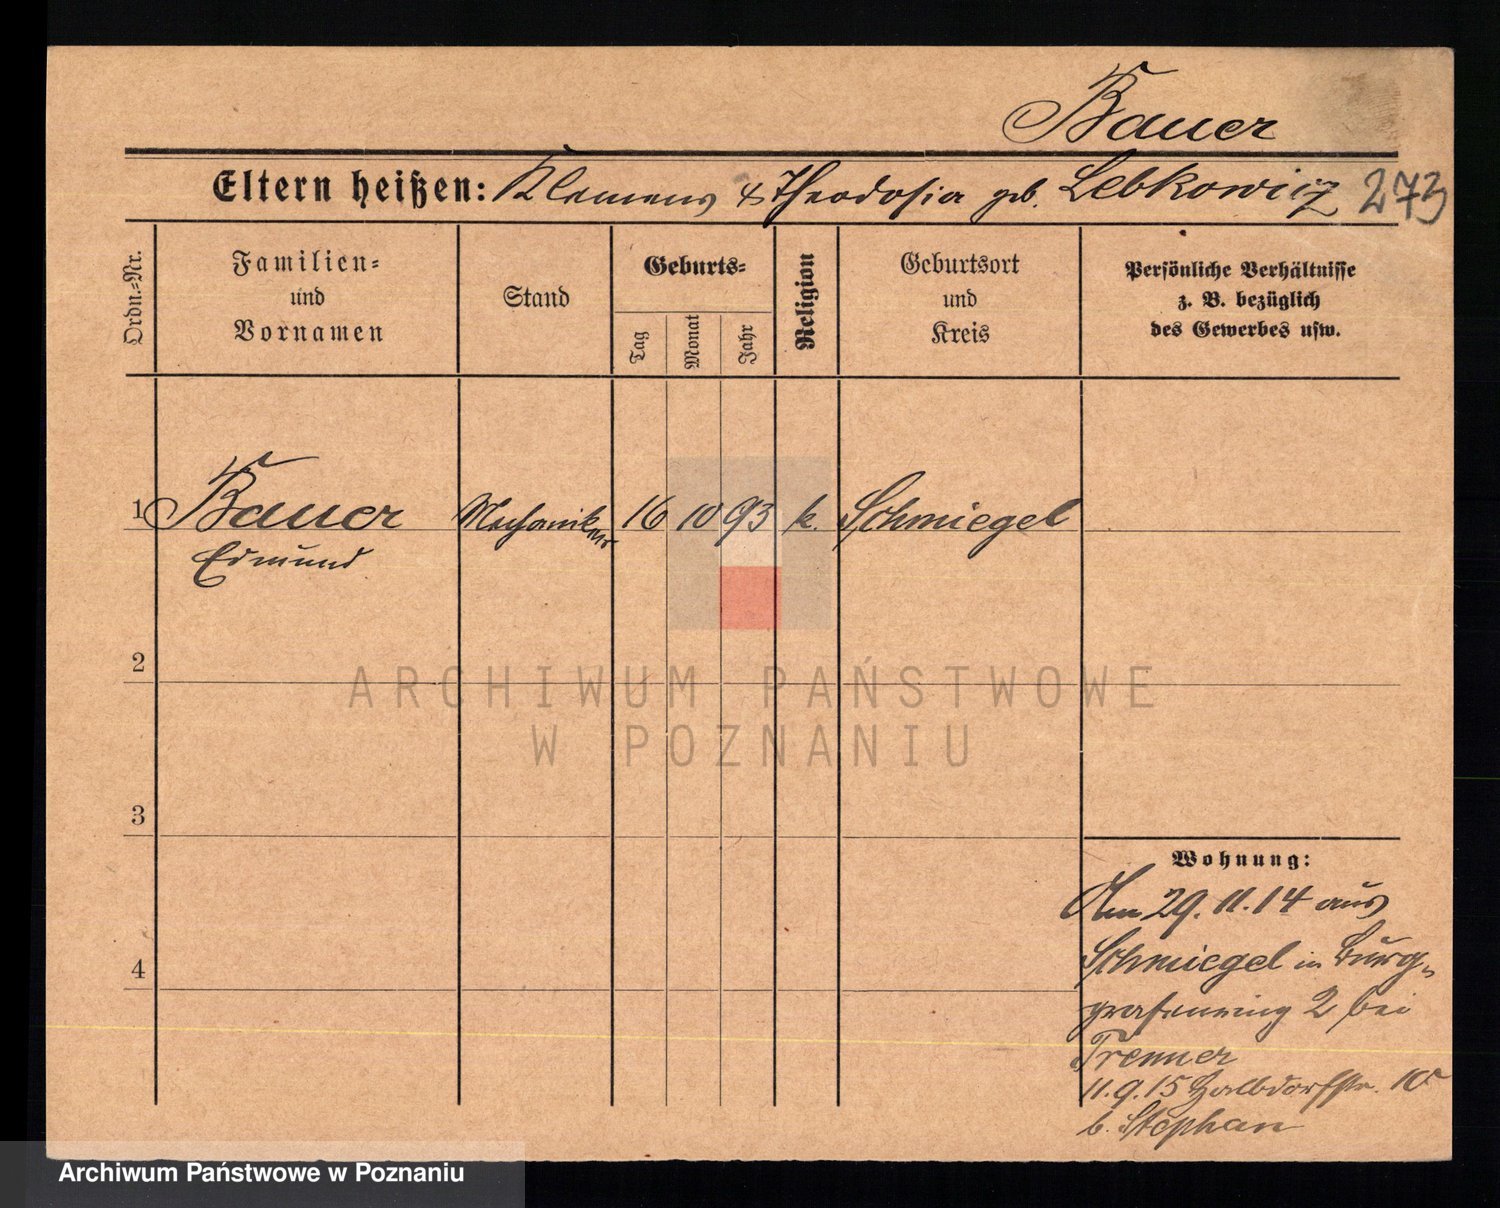 Bauer
Eltern heißen: Klemens & Theodosia geb. Lebkowicz 273
Ordn.-Nr.
Familien-
und
Vornamen
Stand
Geburts-
Tag
Monat
Jahr
Religion
Geburtsort
und
Kreis
Persönliche Verhältnisse
z. B. bezüglich
des Gewerbes usw.
1 Bauer Mechaniker 16 10 93 k. Schmiegel
Edmund
2
ARCHIWUM PAŃSTWOWE
W POZNANIU
3
Wohnung:
Am 29.11.14 aus
4 Schmiegel in Burg-
grafenring 2 bei
Trenner
11.9.15 Halbdorfstr. 10
b. Stephan
Archiwum Państwowe w Poznaniu